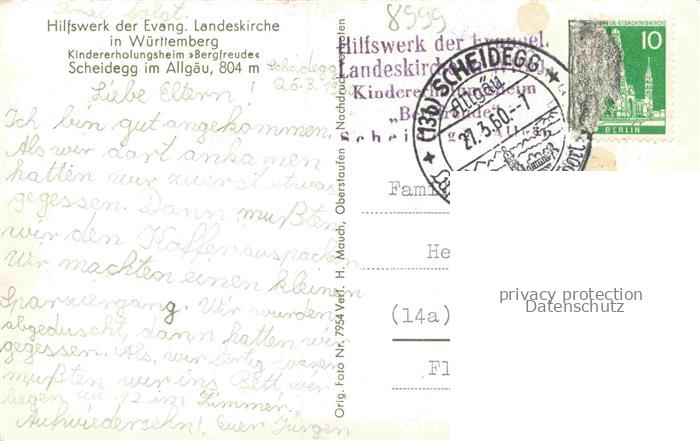 Brief folgt.
Hilfswerk der Evang. Landeskirche
in Württemberg
Kindererholungsheim »Bergfreude«
Scheidegg im Allgäu, 804 m
Scheidegg
26.3.19
Liebe Eltern!
Ich bin gut angekommen.
Als wir dort ankamen
hatten wir zuerst etwas
gegessen. Dann mußten
wir den Koffer auspacken
Wir machten einen kleinen
Sparziergang. Wir wurden
abgeduscht, dann hatten wir
gegessen. Als wir fertig waren
mußten wir ins Bett wir
liegen zu 12 im Zimmer.
Aufwiedersehn! Euer Jürgen
Orig. Foto Nr. 7954 Verl. H. Mauch, Oberstaufen Nachdruck verboten
8999
Hilfswerk der Evangel.
Landeskirche
Kindererholungsheim
"Bergfreude"
Scheidegg Allgäu
(13b) SCHEIDEGG
Allgäu
27.3.60.-7
10
BERLIN
Fami
He
(14a)
Fl
privacy protection
Datenschutz